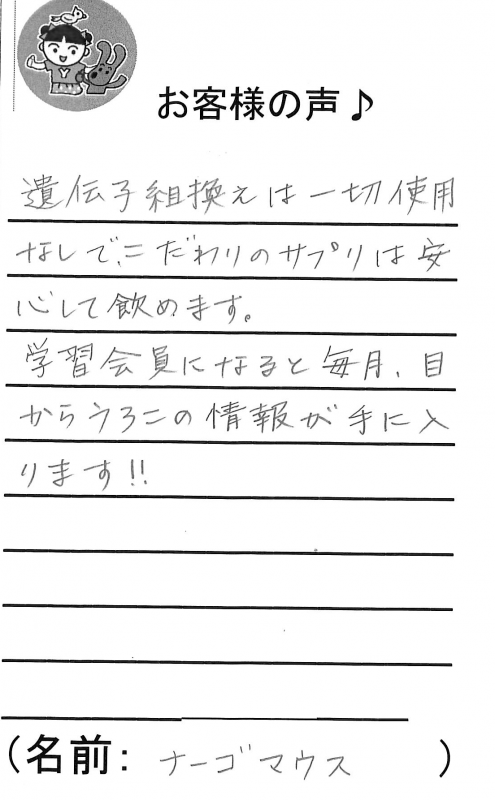 お客様の声♪
遺伝子組換えは一切使用
なしで、こだわりのサプリは安
心して飲めます。
学習会員になると毎月、目
からうろこの情報が手に入
ります!!
(名前: ナーゴマウス )